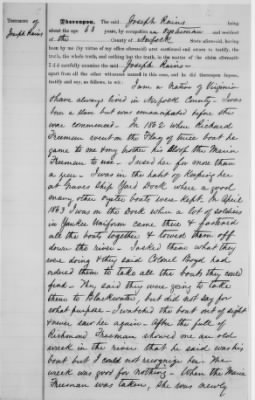 Testimony of
Joseph Rains
Thereupon, The said Joseph Rains being
about the age 63 years, by occupation an oysterman and resident
of the County of Norfolk State aforesaid, having
been by me (by virtue of my office aforesaid) cautioned and sworn to testify, the
truth, the whole truth, and nothing but the truth, in the matter of the claim aforesaid:
I did carefully examine the said Joseph Rains
apart from all the other witnesses named in this case, and he did thereupon depose,
testify and say, as follows, to wit:
I am a native of Virginia
& have always lived in Norfolk County. I was
born a slave but was emancipated before the
war commenced. In 1862 when Richard
Freeman went on the Flag of truce boat he
came to me & my brother his Sloop the Maria
Freeman to use. I used her for more than
a year. I was in the habit of keeping her
at Graves Ship Yard Dock where a good
many other oyster boats were kept. In April
1863 I was on the dock when a lot of soldiers
in Yankee Uniform came there & fastened
all the boats together & towed them off
down the river. I asked them what they
were doing & they said Colonel Boyd had
ordered them to take all the boats they could
find. They said they were going to take
them to Blackwater, but did not say for
what purpose. I watched the boat out of sight
& never saw her again. After the fall of
Richmond Freeman showed me an old
wreck in the river that he said was his
boat but I could not recognize her. The
wreck was good for nothing. When the Maria
Freeman was taken, she was newly